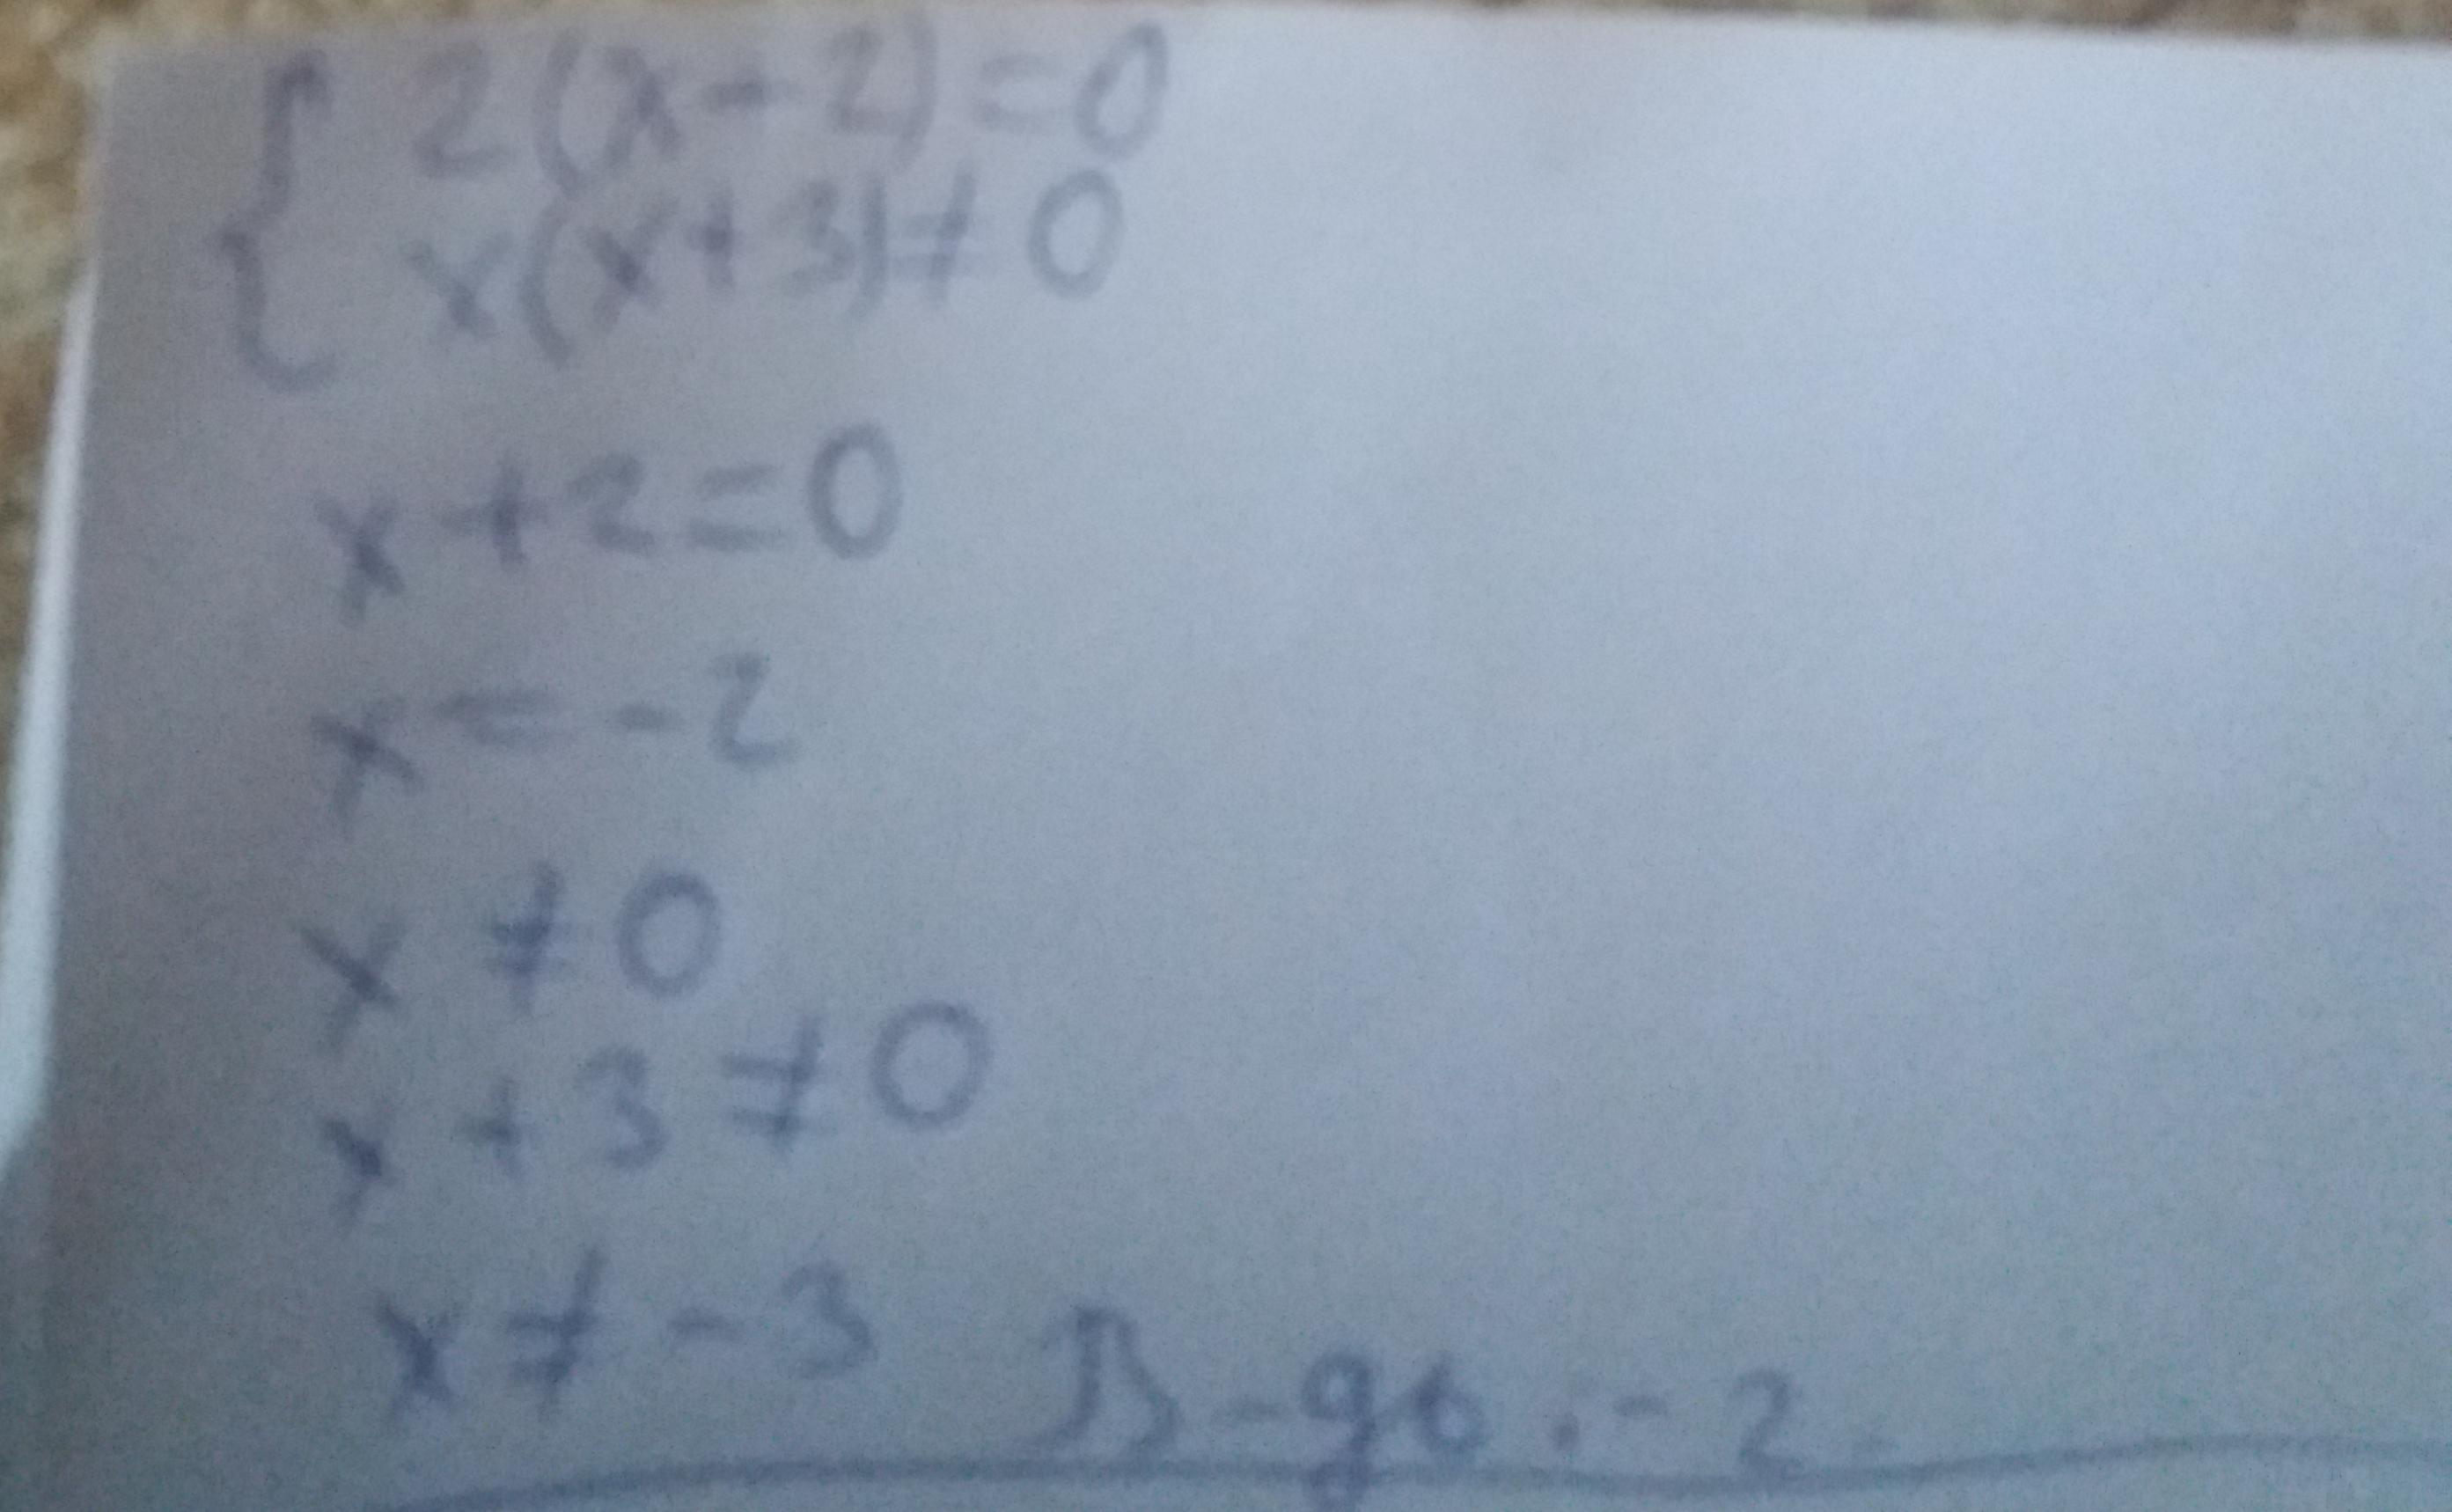 { 2(x-2)=0
x(x+3)≠0
x+2=0
x=-2
x ≠0
x+3≠0
x≠-3 В-дь:-2